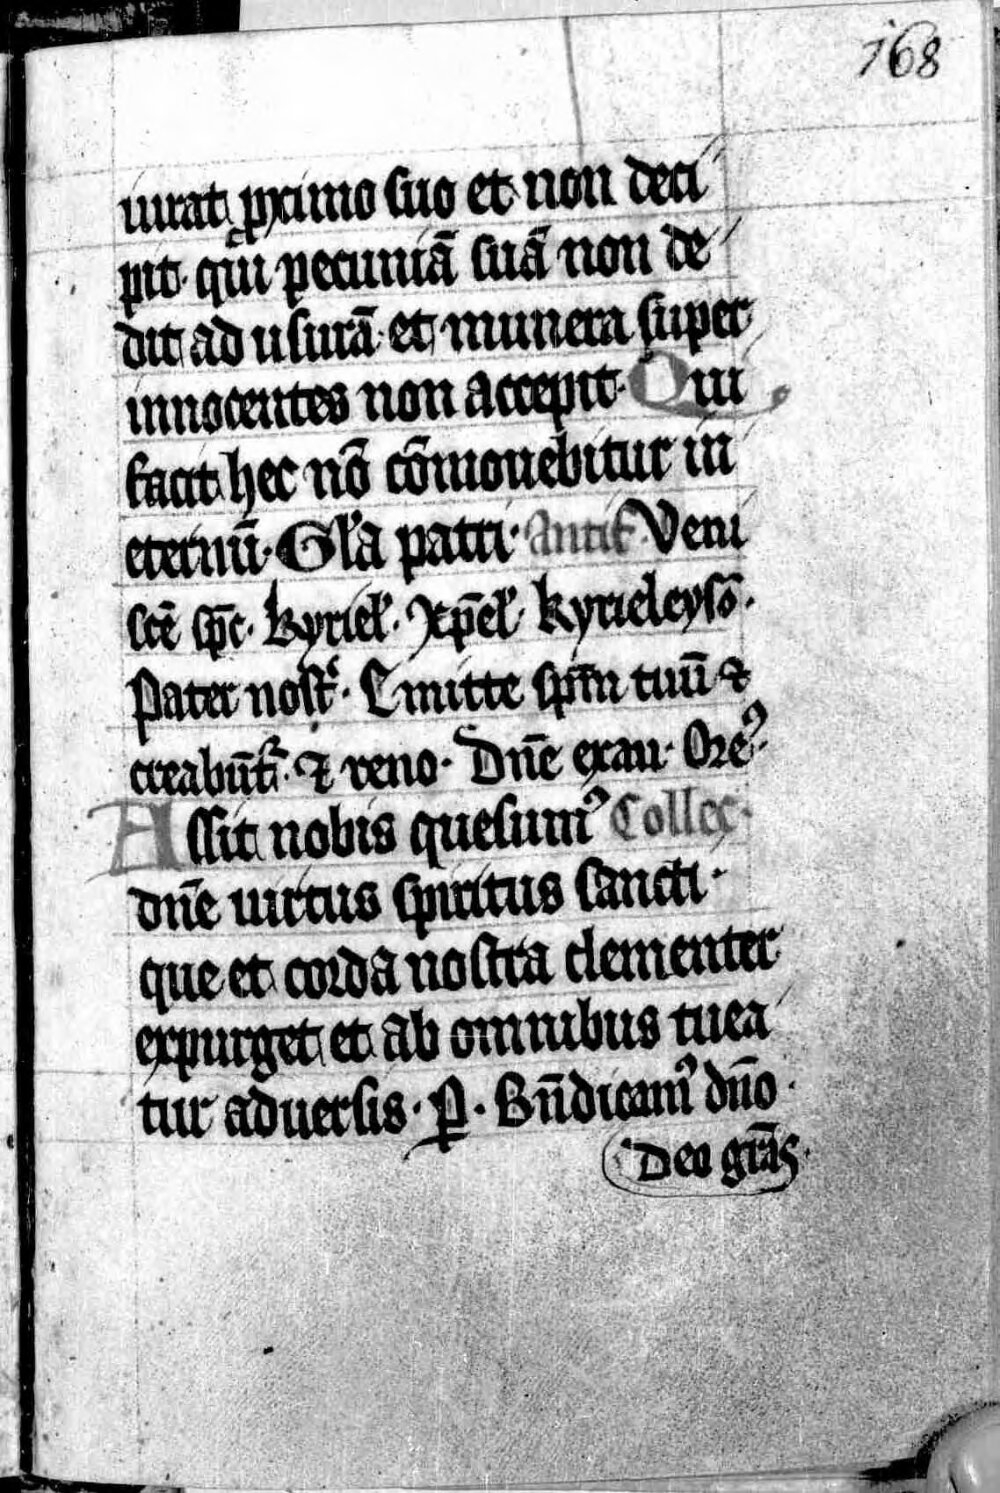 168
iurat ꝓximo suo et non deci
pit· qui pecuniā suā non de
dit ad usurā· et munera super
innocentes non accepit· Qui
facit hec nō cōmouebitur in
eternū· Gl'a patri· Antiẜ. Veni
scē sp̄c· Kyriel'· Xp̄el'· kyrieleysō·
Pater nosť· Emitte sp̄m tuū ⁊
creabūt᷑· ⁊ reno· Dn̄e exau· Orē⁹·
Assit nobis quesum⁹ Collec·
dn̄e uirtus spiritus sancti·
que et corda nostra clementer
expurget et ab omnibus tuea
tur aduersis· P̲· Bn̄dicam⁹ dn̄o·
Deo gr̄as·